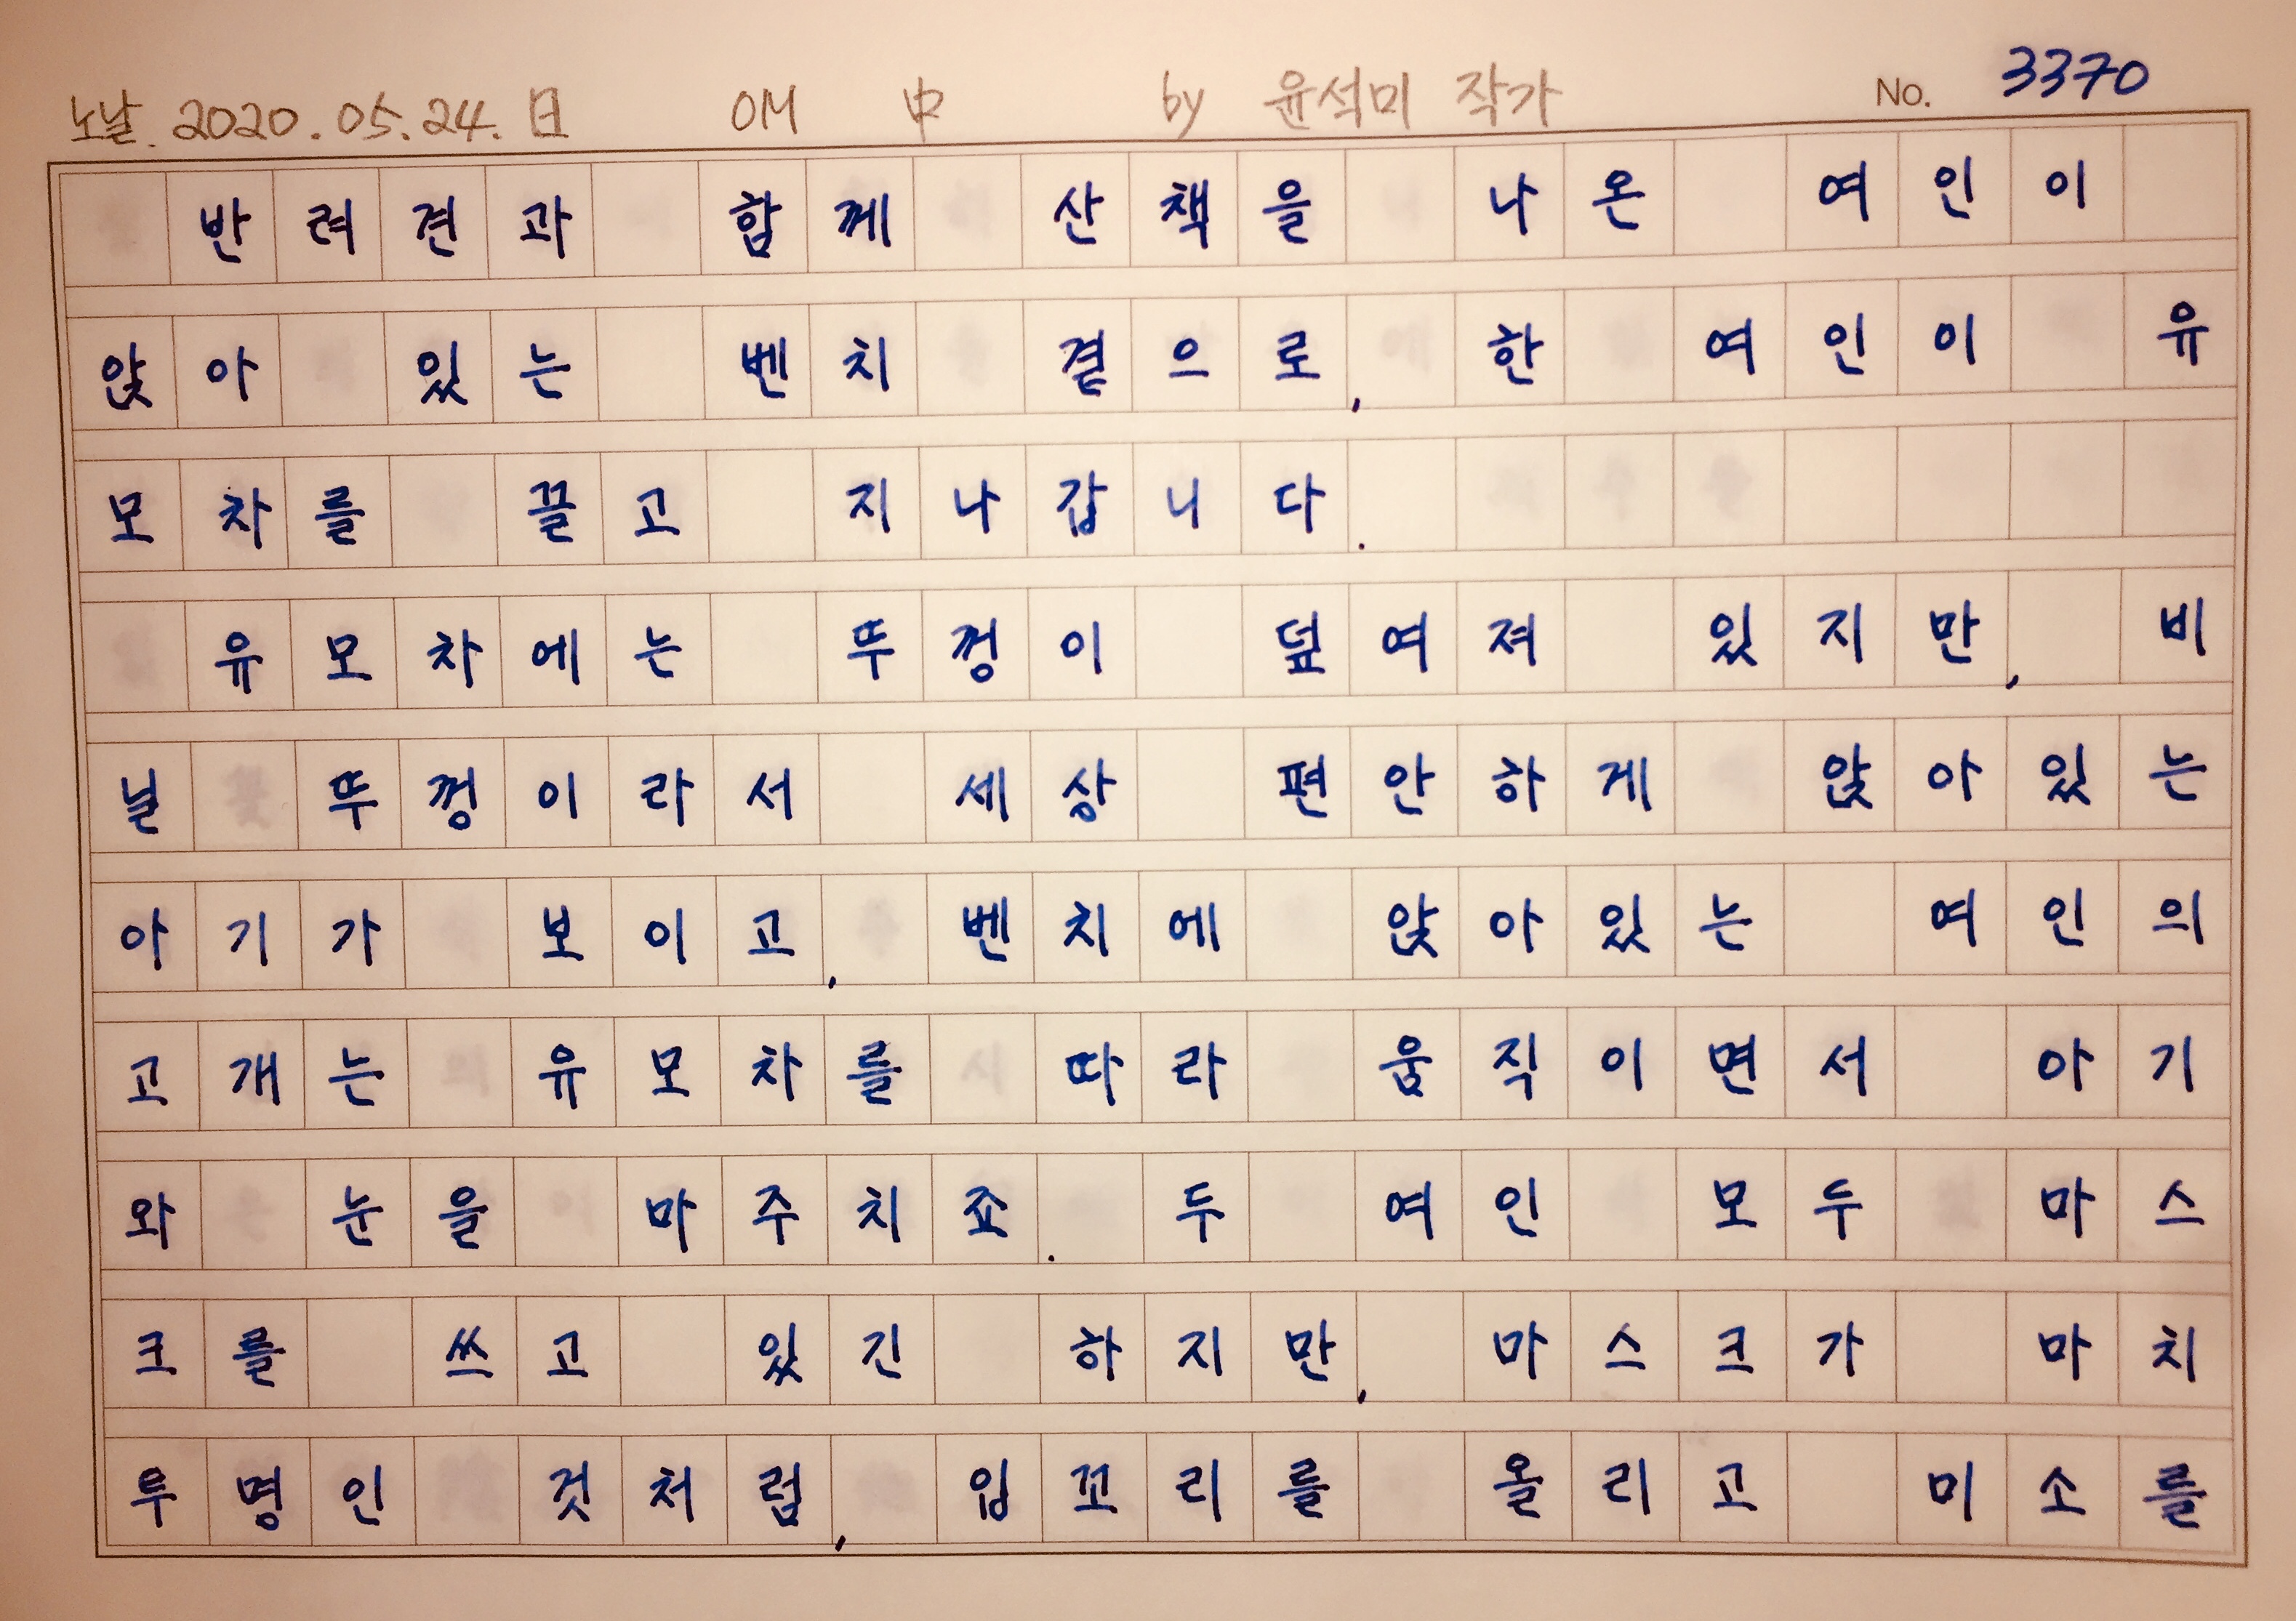 노날. 2020.05.24.日 OM 中 by 윤석미 작가 No. 3370
반려견과 함께 산책을 나온 여인이
앉아 있는 벤치 곁으로, 한 여인이 유
모차를 끌고 지나갑니다.
유모차에는 뚜껑이 덮여져 있지만, 비
닐 뚜껑이라서 세상 편안하게 앉아있는
아기가 보이고, 벤치에 앉아있는 여인의
고개는 유모차를 따라 움직이면서 아기
와 눈을 마주치죠. 두 여인 모두 마스
크를 쓰고 있긴 하지만, 마스크가 마치
투명인 것처럼, 입꼬리를 올리고 미소를